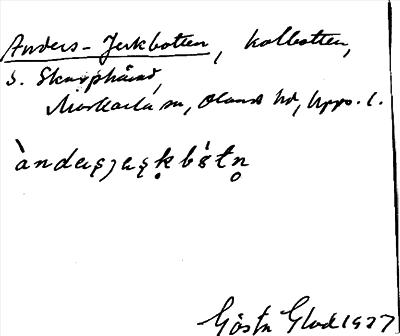 Anders-Jerkbotten, kolbotten,
S. Skarphärad,
Morkarla sn, Olands hd, Upps. l.
àndeʂjaʂkbȯ́tn̥
Gösta Glad 1927